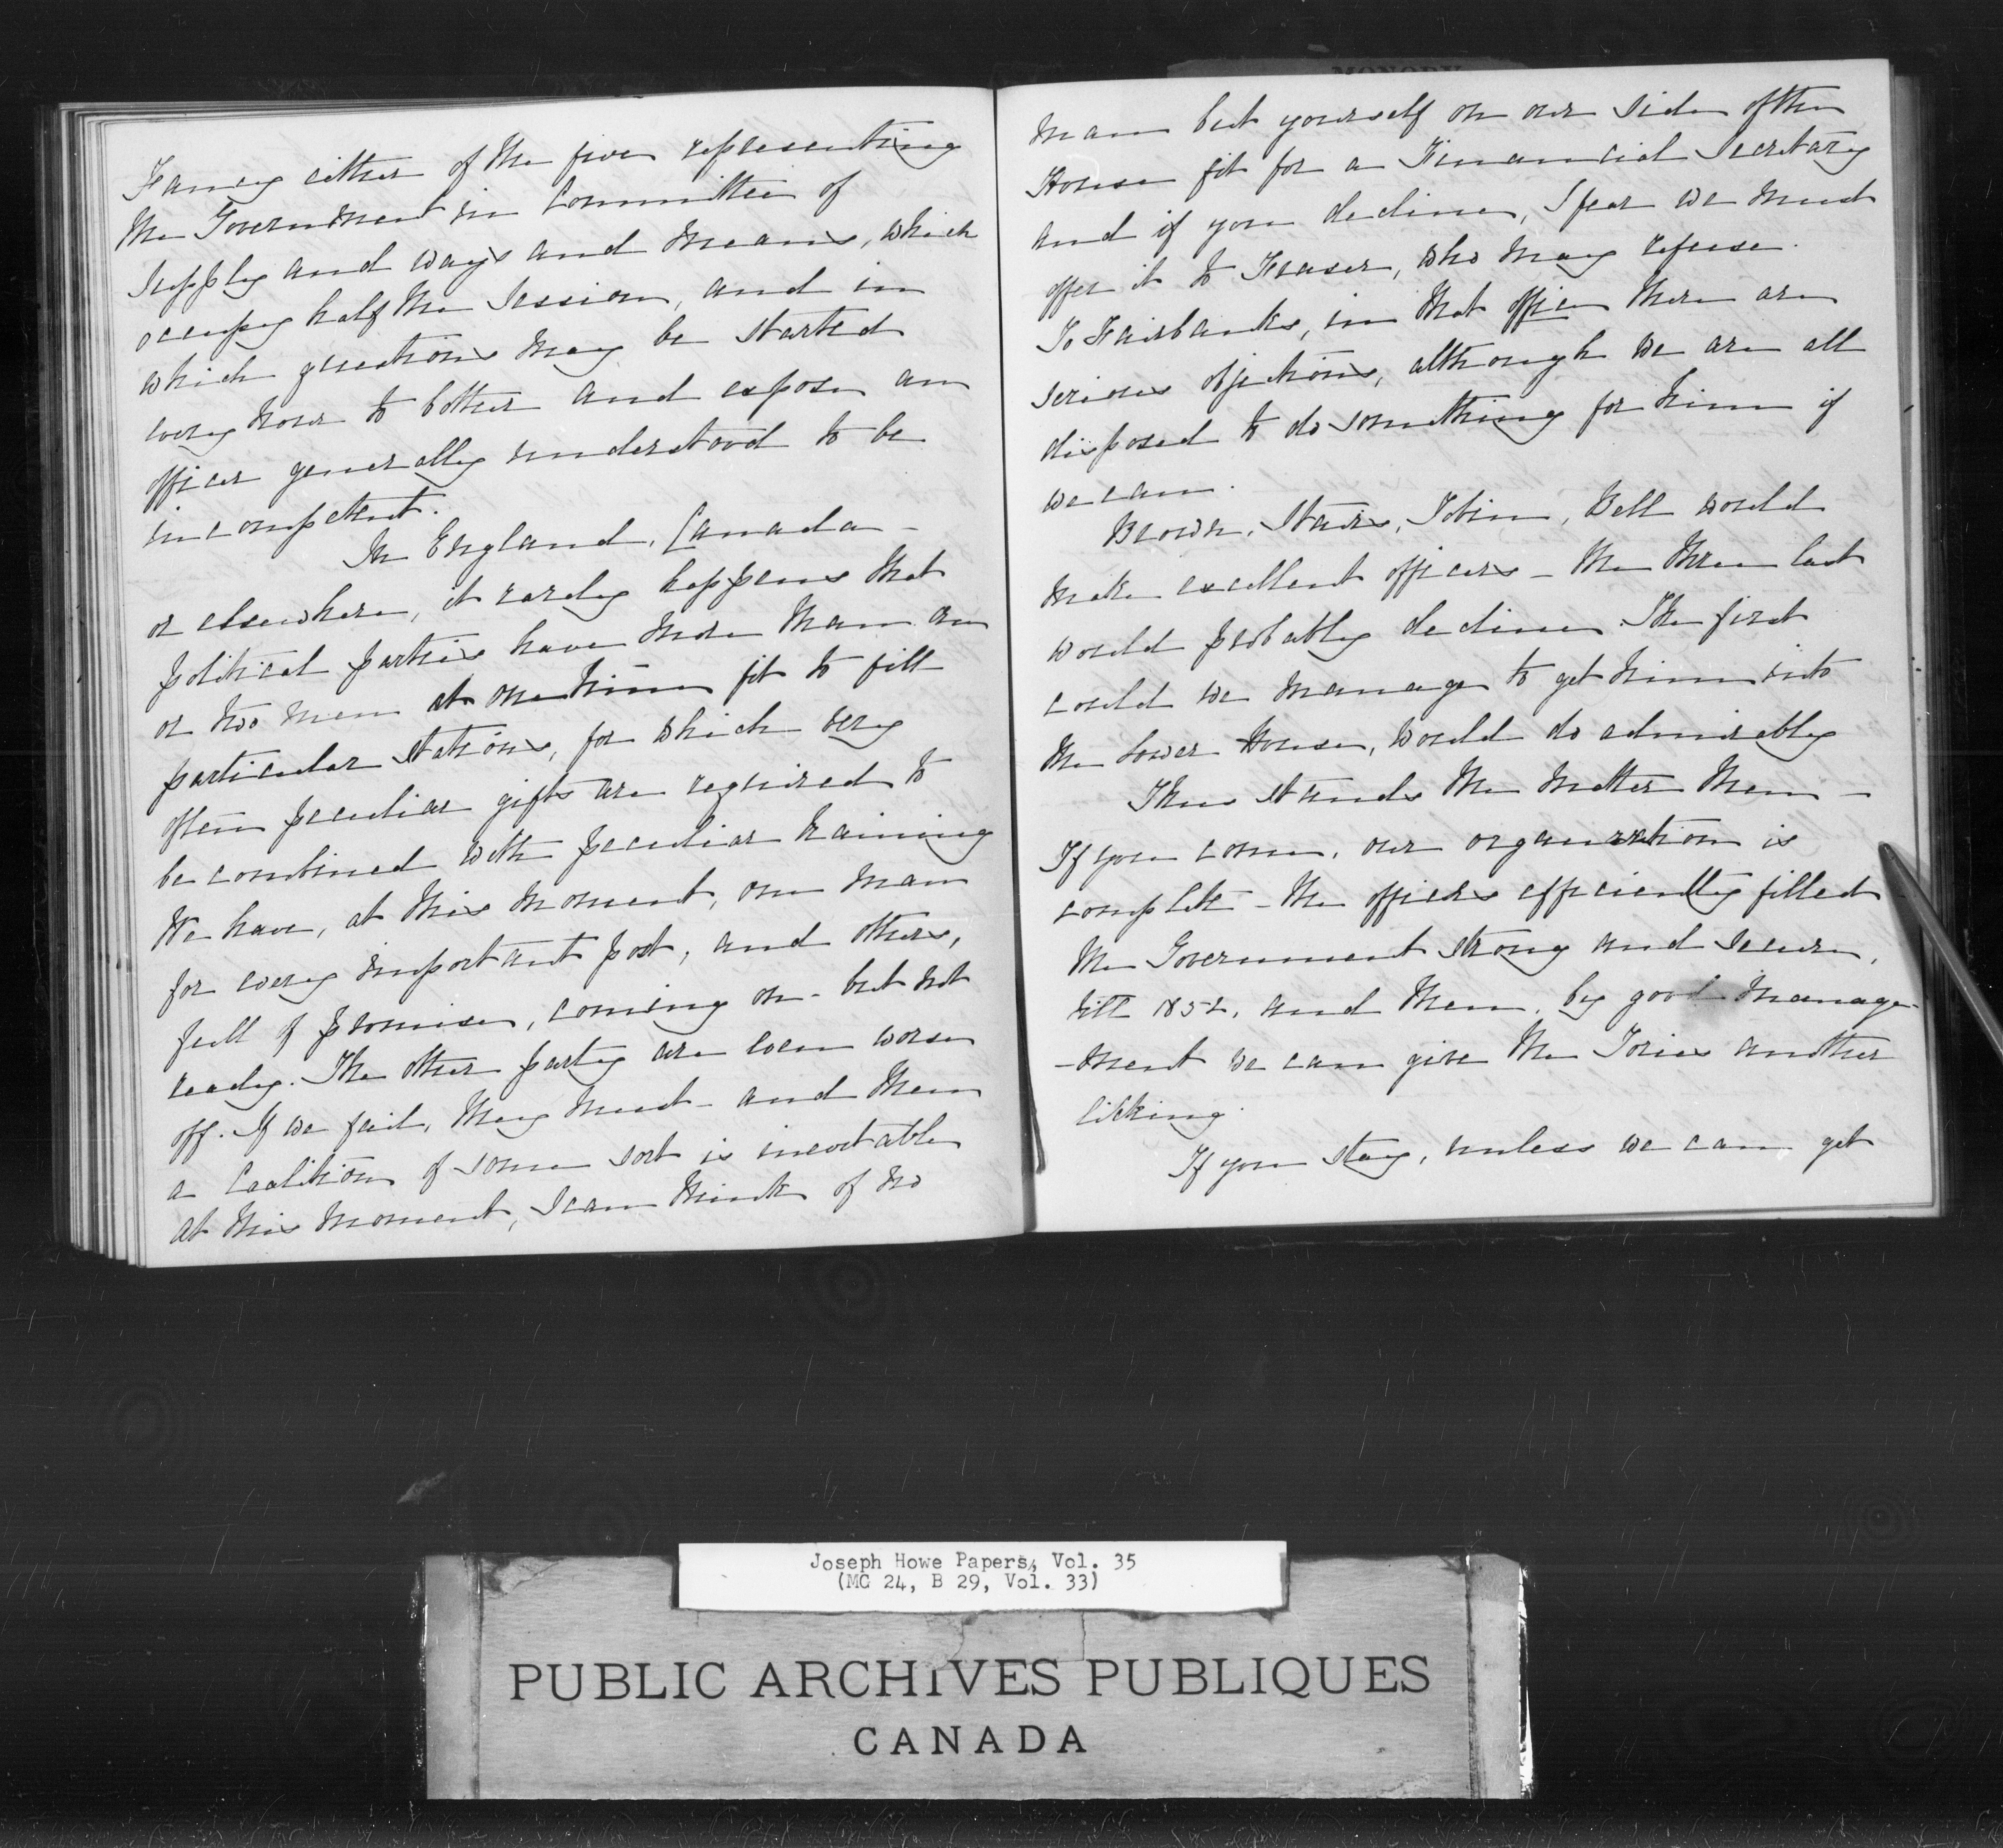 Fancy either of the five representing
the Government in Committee of
Supply and ways and means, which
occupy half the Session, and in
which questions may be started
every hour to bother and expose an
officer generally understood to be
incompetent.
In England, Canada -
or elsewhere, it rarely happens that
political parties have more than one
or two men at one time fit to fill
particular stations, for which very
often peculiar gifts are required to
be combined with peculiar training
We have, at this moment, one man
for every important post, and others,
full of promise, coming on - but not
ready. The other party are even worse
off. If we fail, they must - and then
a Coalition of some sort is inevitable
at this moment, I can think of no
man but yourself on our side of the
House fit for a Financial Secretary
and if you decline, I fear we must
offer it to Fraser, who may refuse.
To Fairbanks, in that office there are
serious objections, although we are all
disposed to do something for him if
we can.
Brown, Stairs, Tobin, Bell would
make excellent officers - the three last
would probably decline. The first
could we manage to get him into
the Lower House, would do admirably
Thus stands the matter then -
If you come, our organization is
complete - the offices efficiently filled
the Government strong and secure,
till 1852, and then, by good manage-
-ment we can give the Tories another
licking.
If you stay, unless we can get
Joseph Howe Papers, Vol. 35
(MG 24, B 29, Vol. 33)
PUBLIC ARCHIVES PUBLIQUES
CANADA